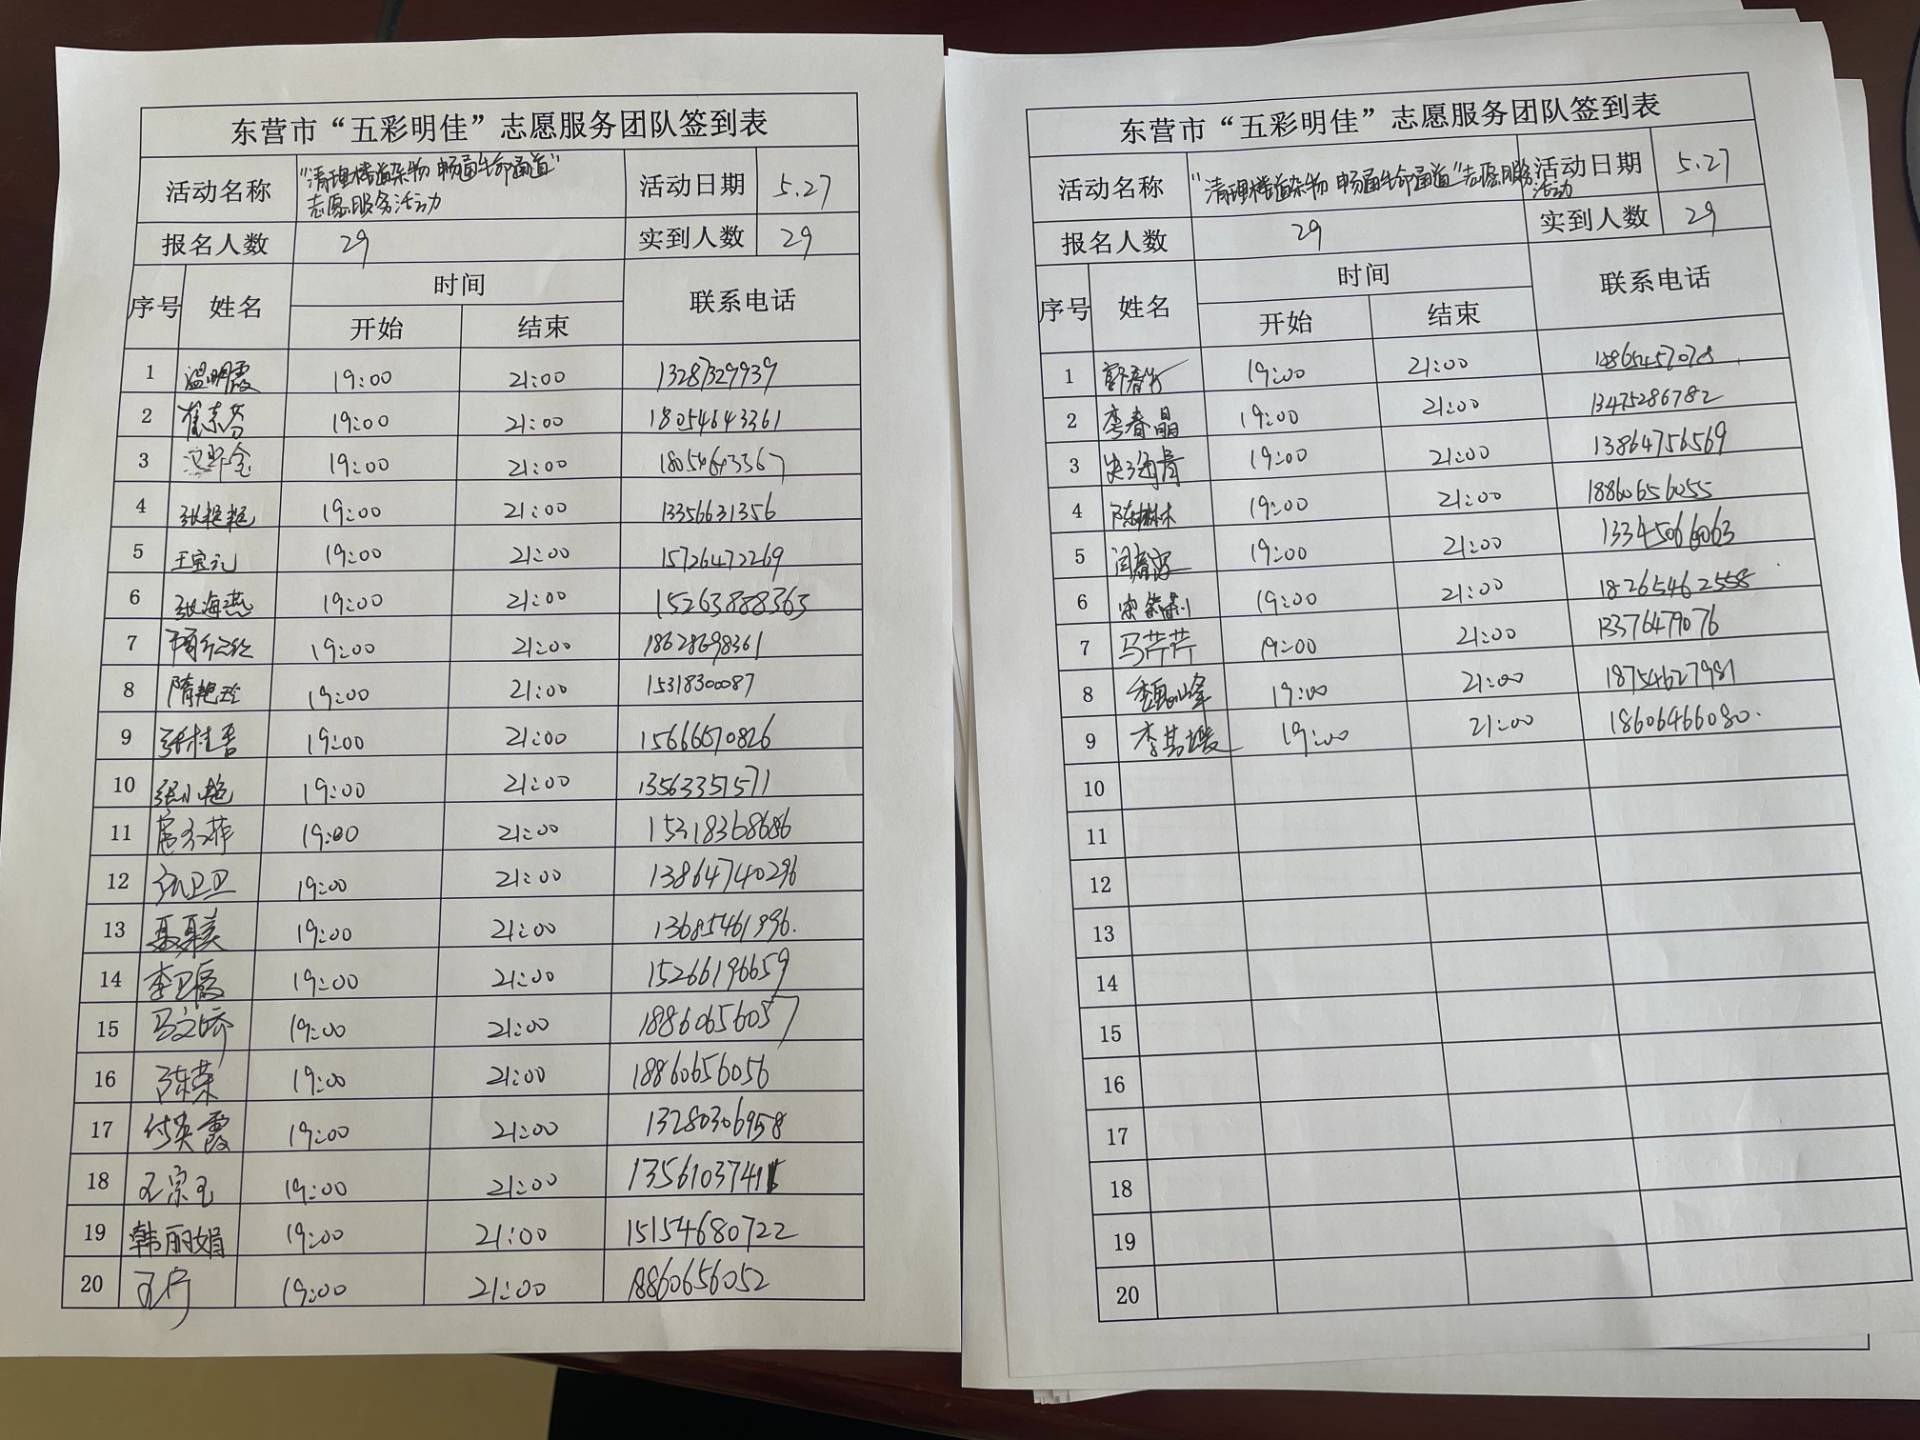 东营市“五彩明佳”志愿服务团队签到表
活动名称 “清理楼道杂物 畅通生命通道” 志愿服务活动 活动日期 5.27
报名人数 29 实到人数 29
序号 姓名 时间 联系电话
开始 结束
1 温明霞 19:00 21:00 13287329939
2 崔素芬 19:00 21:00 18054643361
3 19:00 21:00 18054643367
4 张艳艳 19:00 21:00 13356631356
5 王宝元 19:00 21:00 15726472269
6 张海燕 19:00 21:00 15263888363
7 19:00 21:00 18628698361
8 隋艳玲 19:00 21:00 15318300087
9 张桂香 19:00 21:00 15666570826
10 张小艳 19:00 21:00 13563351571
11 19:00 21:00 15318368686
12 19:00 21:00 13864740296
13 19:00 21:00 13685461396.
14 李卫霞 19:00 21:00 15266196659
15 马文娇 19:00 21:00 18860656057
16 陈荣 19:00 21:00 18860656056
17 付英霞 19:00 21:00 13280306958
18 王宗玉 19:00 21:00
19 韩丽娟 19:00 21:00 15154680722
20 王宁 19:00 21:00 18860656052
东营市“五彩明佳”志愿服务团队签到表
活动名称 “清理楼道杂物 畅通生命通道”志愿服务活动 活动日期 5.27
报名人数 29 实到人数 29
序号 姓名 时间 联系电话
开始 结束
1 19:00 21:00
2 李春晶 19:00 21:00 13475286782
3 19:00 21:00 13864756569
4 陈琳琳 19:00 21:00 18860656055
5 19:00 21:00 13345066063
6 19:00 21:00 18265462558
7 马芹芹 19:00 21:00 13376479076
8 魏山峰 19:00 21:00 18754627981
9 李其媛 19:00 21:00 18606466080.
10
11
12
13
14
15
16
17
18
19
20